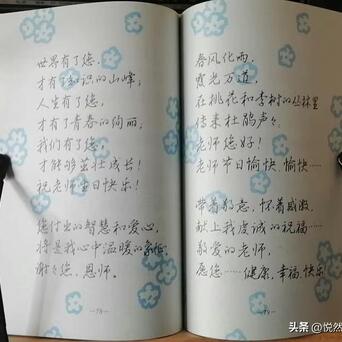 世界有了您，
才有知识的山峰，
人生有了您，
才有了青春的绚丽，
我们有了您，
才能够茁壮成长！
祝老师节日快乐！
您付出的智慧和爱心，
将是我心中温暖的
谢谢您，恩师。
—78—
春风化雨，
霞光万道，
在桃花和李树的丛林里
传来杜鹃声声
老师您好！
老师节日愉快，愉快……
带着敬意，怀着感激，
献上我虔诚的祝福……
敬爱的老师，
愿您……健康，幸福，快乐
—79—
头条 @悦然